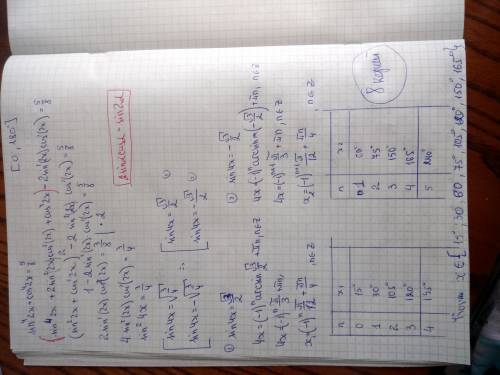 [0, 180°]
sin⁴2x + cos⁴2x = 5/8
(sin⁴2x + 2sin²(2x)cos²(2x) + cos⁴2x) - 2sin²(2x)cos²(2x) = 5/8
(sin²2x + cos²2x)² - 2 sin²(2x) cos²(2x) = 5/8
1 - 2 sin²(2x) cos²(2x) = 5/8
2 sin²(2x) cos²(2x) = 3/8 | · 2
4 sin²(2x) cos²(2x) = 3/4
sin² 4x = 3/4
2sinαcosα = sin2α
sin4x = √3/4
sin4x = -√3/4
sin4x = √3/2 ①
sin4x = -√3/2 ②
① sin4x = √3/2
4x = (-1)ⁿ arcsin √3/2 + πn, n∈Z
4x = (-1)ⁿ π/3 + πn,
x₁ = (-1)ⁿ π/12 + πn/4, n∈Z
② sin4x = -√3/2
4x = (-1)ⁿ arcsin(-√3/2) + πn, n∈Z
4x = (-1)ⁿ⁺¹ π/3 + πn, n∈Z
x₂ = (-1)ⁿ⁺¹ π/12 + πn/4, n∈Z
n x₁
0 15°
1 30°
2 105°
3 120°
4 195°
n x₂
1 60°
2 75°
3 150°
4 165°
5 240°
8 корней
x ∈ {15°, 30, 60, 75, 105, 120°, 150°, 165°}